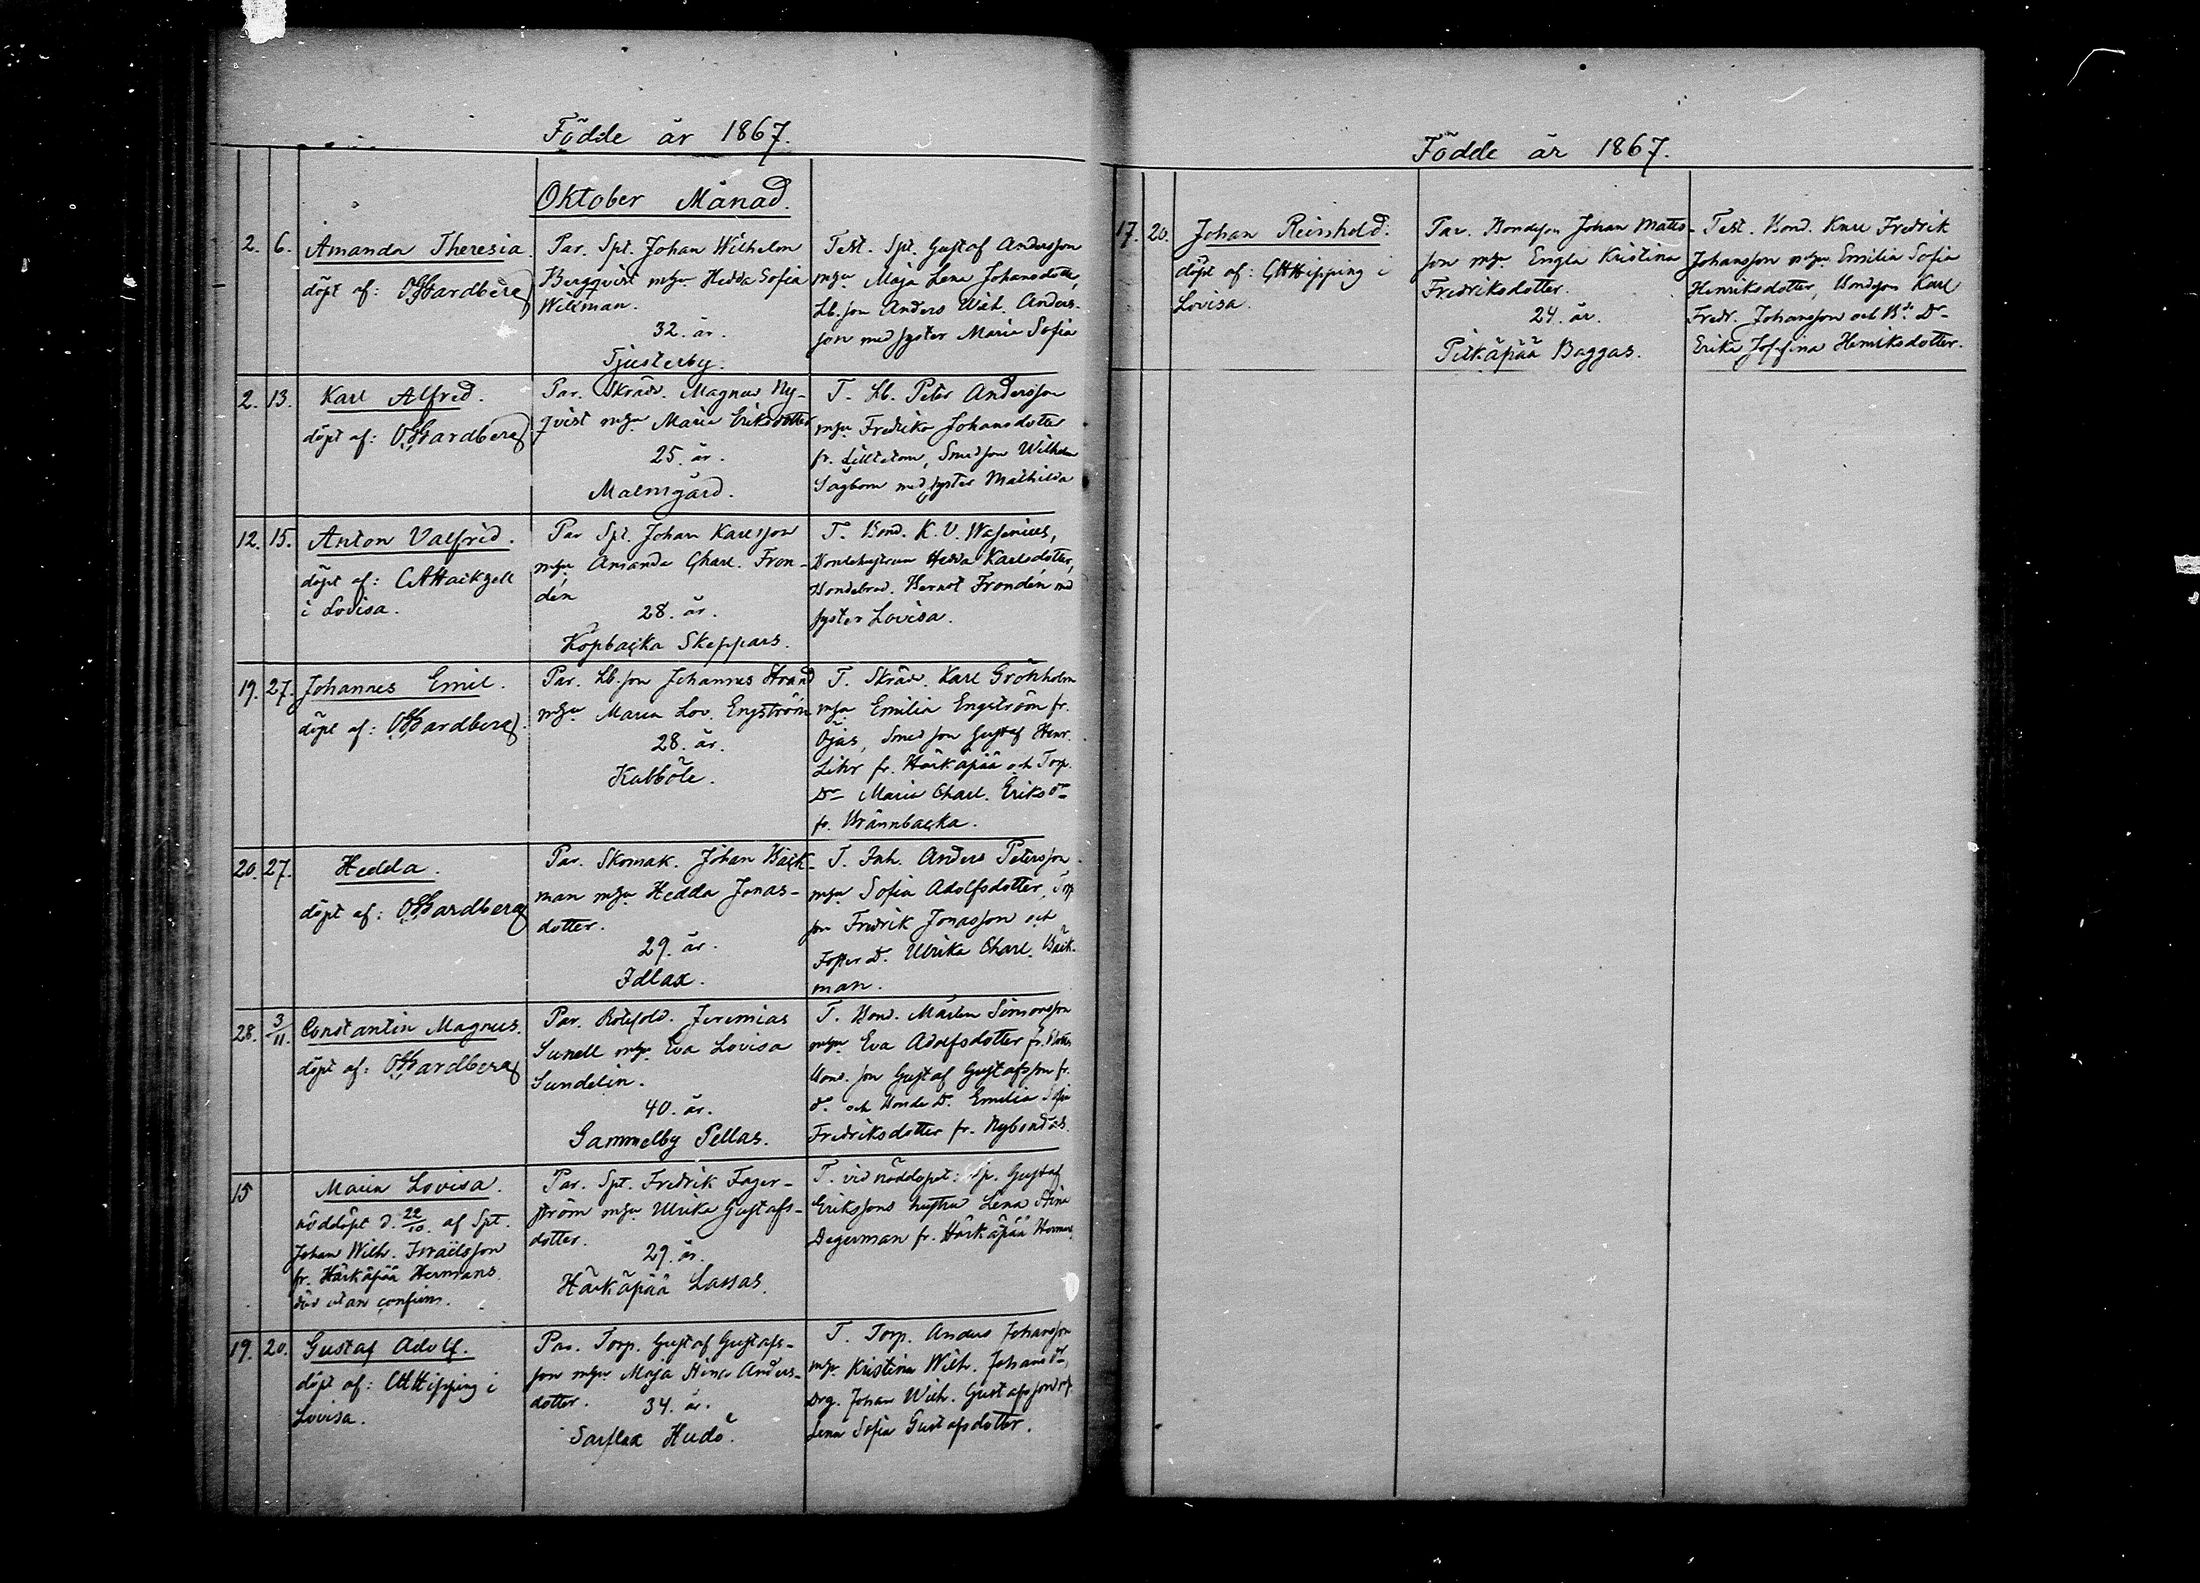 Födde år 1867.
Oktober Månad.
2. 6. Amanda Theresia.
döpt af: OHardberg
Par. Spt. Johan Wilhelm
Bergqvist m hu Hedda Sofia
Willman.
32. år.
Tjusterby.
Test. Spt. Gustaf Andersson
m hu Maja Lena Johansdotter,
Lb. son Anders Wilh. Anders-
son med syster Maria Sofia
2. 13. Karl Alfred.
döpt af: OHardberg
Par. Skräd. Magnus Ny-
qvist m hu Maria Eriksdotter
25. år.
Malmgård.
T. Lb. Peter Andersson
m hu Fredrika Johansdotter
fr. Lilltatom, Smedson Wilhelm
Sågbom med syster Mathilda
12. 15. Anton Valfrid.
döpt af:
i Lovisa.
Par Spt. Johan Karlsson
m hu Amanda Charl. Fron-
dén
28. år.
Köpbacka Skeppars.
T. Bond. K. V. Wasenius,
Bondehustrun Hedda Karlsdotter,
Bondebrod. Berndt Frondén med
syster Lovisa.
19. 27. Johannes Emil.
döpt af: OHardberg.
Par. Lb. son Johannes Strand
m hu Maria Lov. Engström
28. år.
Kalböle.
T. Skräd. Karl Grönholm
m hu Emilia Engström fr.
Öjas, Smedson Gustaf Henr.
fr. Härkäpää och Torp.
Dr Maria Charl. Eriksdr
fr. Brännbacka.
20. 27. Hedda.
döpt af: OHardberg
Par. Skomak. Johan Bäck-
man m hu Hedda Jonas-
dotter.
29. år.
Idlax.
T. Inh. Anders Petersson
m hu Sofia Adolfsdotter, Torp
son Fredrik Jonasson och
Foster D. Ulrika Charl. Bäck-
man.
28. 3/11. Constantin Magnus.
döpt af: OHardberg
Par. Rotesold. Jeremias
Sunell m hu Eva Lovisa
Sundelin.
40. år.
Gammelby Pellas.
T. Bond. Mårten Simonsson
m hu Eva Adolfsdotter fr.
Bond. son Gustaf Gustafsson fr.
do och Bonde D. Emilia Sofia
Fredriksdotter fr. Nybondas.
15 Maria Lovisa.
nöddöpt d. 22/10 af Spt.
Johan Wilh. Israëlsson
fr. Härkäpää Hermans.
död utan confirm.
Par. Spt. Fredrik Fager-
ström m hu Ulrika Gustafs-
dotter.
29. år.
Härkäpää Lassas.
T. vid nöddopet: Sp. Gustaf
Erikssons hustru Lena Stina
Degerman fr. Härkäpää Hermans
19. 20. Gustaf Adolf.
döpt af: GHHipping i
Lovisa.
Par. Torp. Gustaf Gustafs-
son m hu Maja Stina Anders-
dotter. 34. år.
Sarflax Hudö.
T. Torp. Anders Johansson
m hu Kristina Wilh. Johansdr,
Drg. Johan Wilh. Gustafsson
Lena Sofia Gustafsdotter.
Födde år 1867.
17. 20. Johan Reinhold.
döpt af: GHHipping i
Lovisa
Par. Bondeson Johan Matts-
son m hu Engla Kristina
Fredriksdotter.
24. år.
Pitkäpää Baggas.
Test. Bond. Karl Fredrik
Johansson m hu Emilia Sofia
Henriksdotter, Bondson Karl
Fredr. Johansson och Bd. Dr
Erika Josefina Henriksdotter.